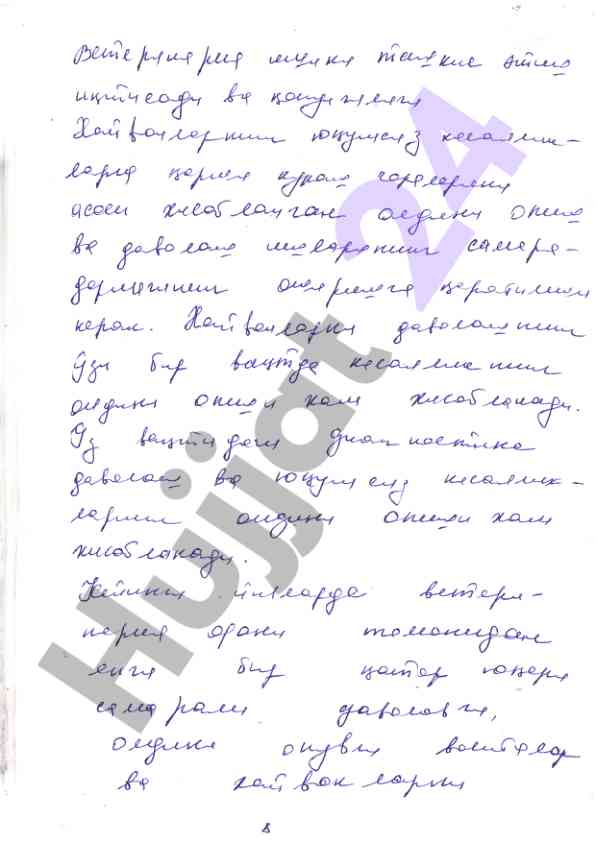 Ветеринария ишини ташкил этиш
иқтисоди ва қонунчилиги
Хайвонларнинг юқумсиз касаллик-
ларга қарши кураш чоралари
асоси хисобланган олдини олиш
ва даволаш ишларининг самара-
дорлигини оширишга қаратилиши
керак. Хайвонларни даволашнинг
ўзи бир вақтда касалликнинг
олдини олиш хам хисобланади.
Ўз вақтидаги диагностика
даволаш ва юқумсиз касаллик-
ларнинг олдини олиш хам
хисобланади.
Кейинги йилларда ветери-
нария фани томонидан
янги бир қатор юқори
самарали даволовчи,
олдини олувчи воситалар
ва хайвонларни
8
Hujjat 24